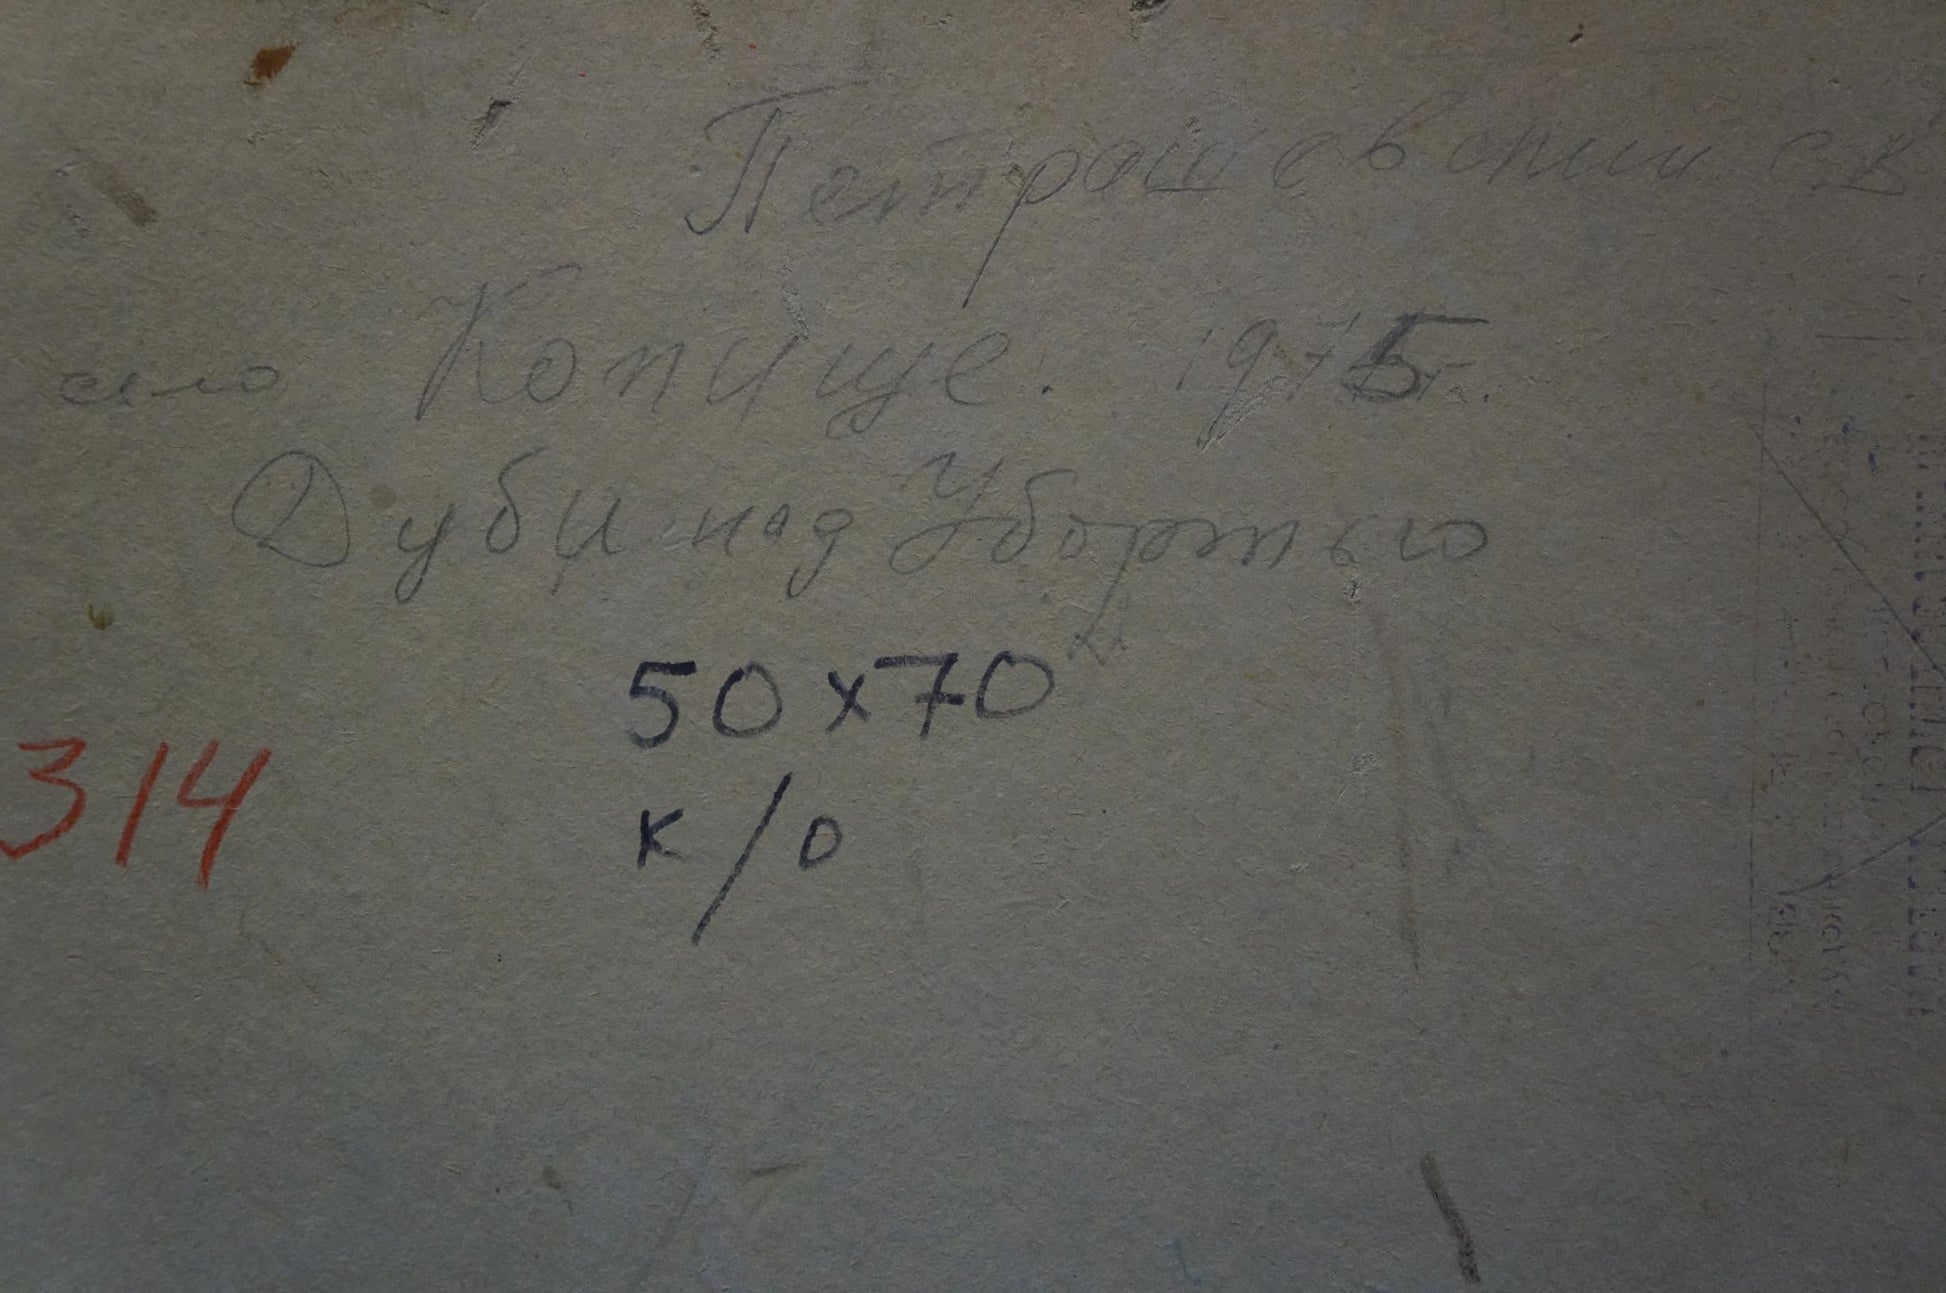 Петрашевский С.В
село Копище. 1975г.
Дуби над Убортью
50х70
314
к/о